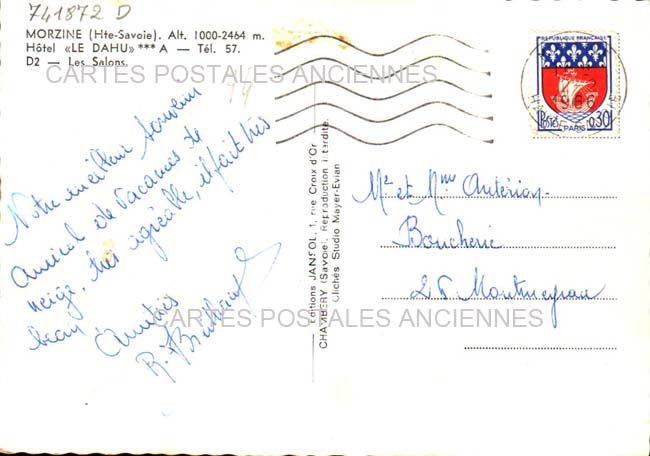 741872 D
MORZINE (Hte-Savoie). Alt. 1000-2464 m.
Hôtel «LE DAHU» *** A — Tél. 57.
D2 — Les Salons.
CARTES POSTALES ANCIENNES
Notre meilleur souvenir
amical de vacances de
neige, très agréable, il fait très
beau
Amitiés
R.
Editions JANSOL, 1, rue Croix d'Or
CHAMBÉRY (Savoie). Reproduction interdite.
Clichés Studio Mayer-Evian
REPUBLIQUE FRANÇAISE
Postes 0,30
PARIS
1966
Mr et Mme Antérion
Boucherie
26 Montmeyran
CARTES POSTALES ANCIENNES